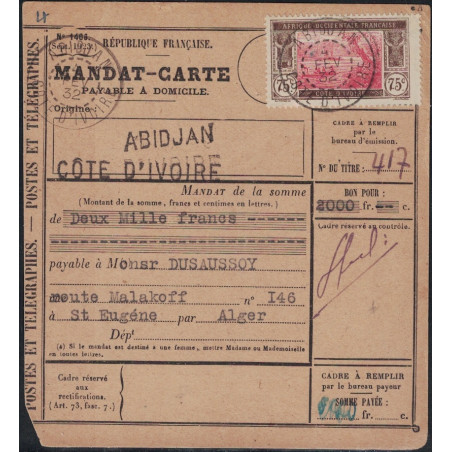 N° 1406.
(Sept. 1922)
RÉPUBLIQUE FRANÇAISE.
MANDAT-CARTE
PAYABLE À DOMICILE.
Origine:
ABIDJAN
CÔTE D'IVOIRE
ABIDJAN
FEV
32
CÔTE D'IVOIRE
AFRIQUE OCCIDENTALE FRANÇAISE
75c 75c
CÔTE D'IVOIRE
CADRE À REMPLIR
par le
bureau d'émission.
N° DU TITRE: 417
MANDAT de la somme
(Montant de la somme, francs et centimes en lettres.)
de Deux Mille francs
BON POUR:
2000 fr. -- c.
Cadre réservé au contrôle.
payable à Monsr DUSAUSSOY
route Malakoff n° I46
à St Eugéne par Alger
Dépt
(A) Si le mandat est destiné à une femme, mettre Madame ou Mademoiselle
en toutes lettres.
Cadre réservé
aux
rectifications.
(Art. 73, fasc. 7.)
CADRE À REMPLIR
par le bureau payeur
SOMME PAYÉE:
fr. c.
POSTES ET TÉLÉGRAPHES. — POSTES ET TÉLÉGRAPHES.